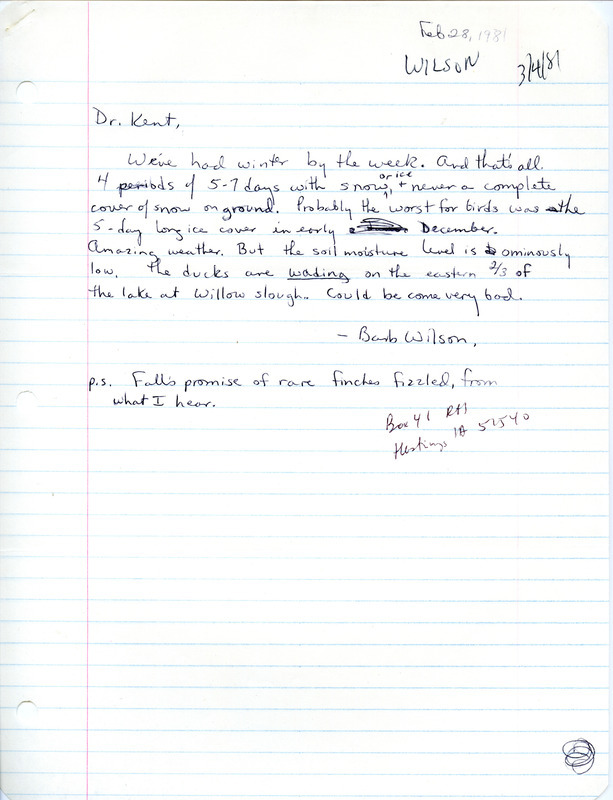 Feb 28, 1981
WILSON 3/4/81
Dr. Kent,
We've had winter by the week. And that's all.
4 periods of 5-7 days with snow, or ice + never a complete
cover of snow on ground. Probably the worst for birds was the
5-day long ice cover in early December.
Amazing weather. But the soil moisture level is ominously
low. The ducks are wading on the eastern 2/3 of
the lake at Willow slough. Could be come very bad.
- Barb Wilson,
p.s. Fall's promise of rare finches fizzled, from
what I hear.
Box 41 RR1
Hastings IA 51540